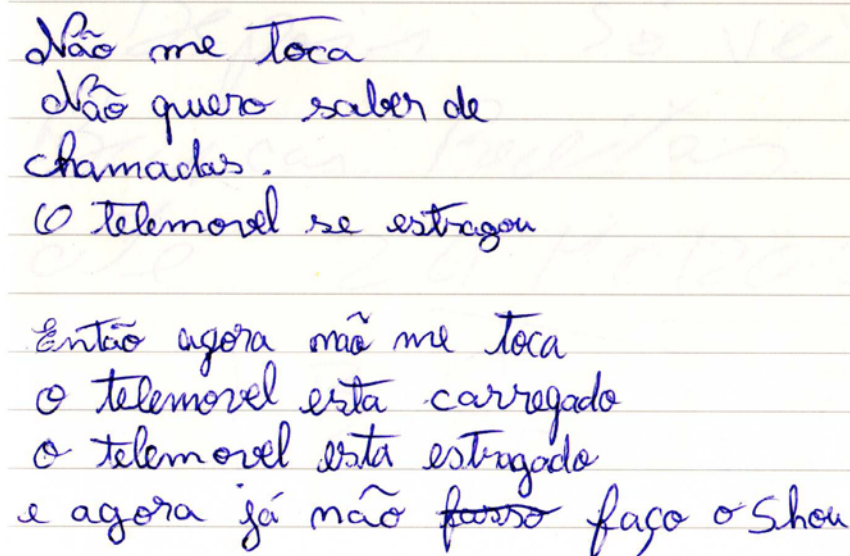 Não me toca
Não quero saber de
chamadas.
O telemovel se estragou
Então agora não me toca
o telemovel esta carregado
o telemovel esta estragado
e agora já não fasso faço o Show